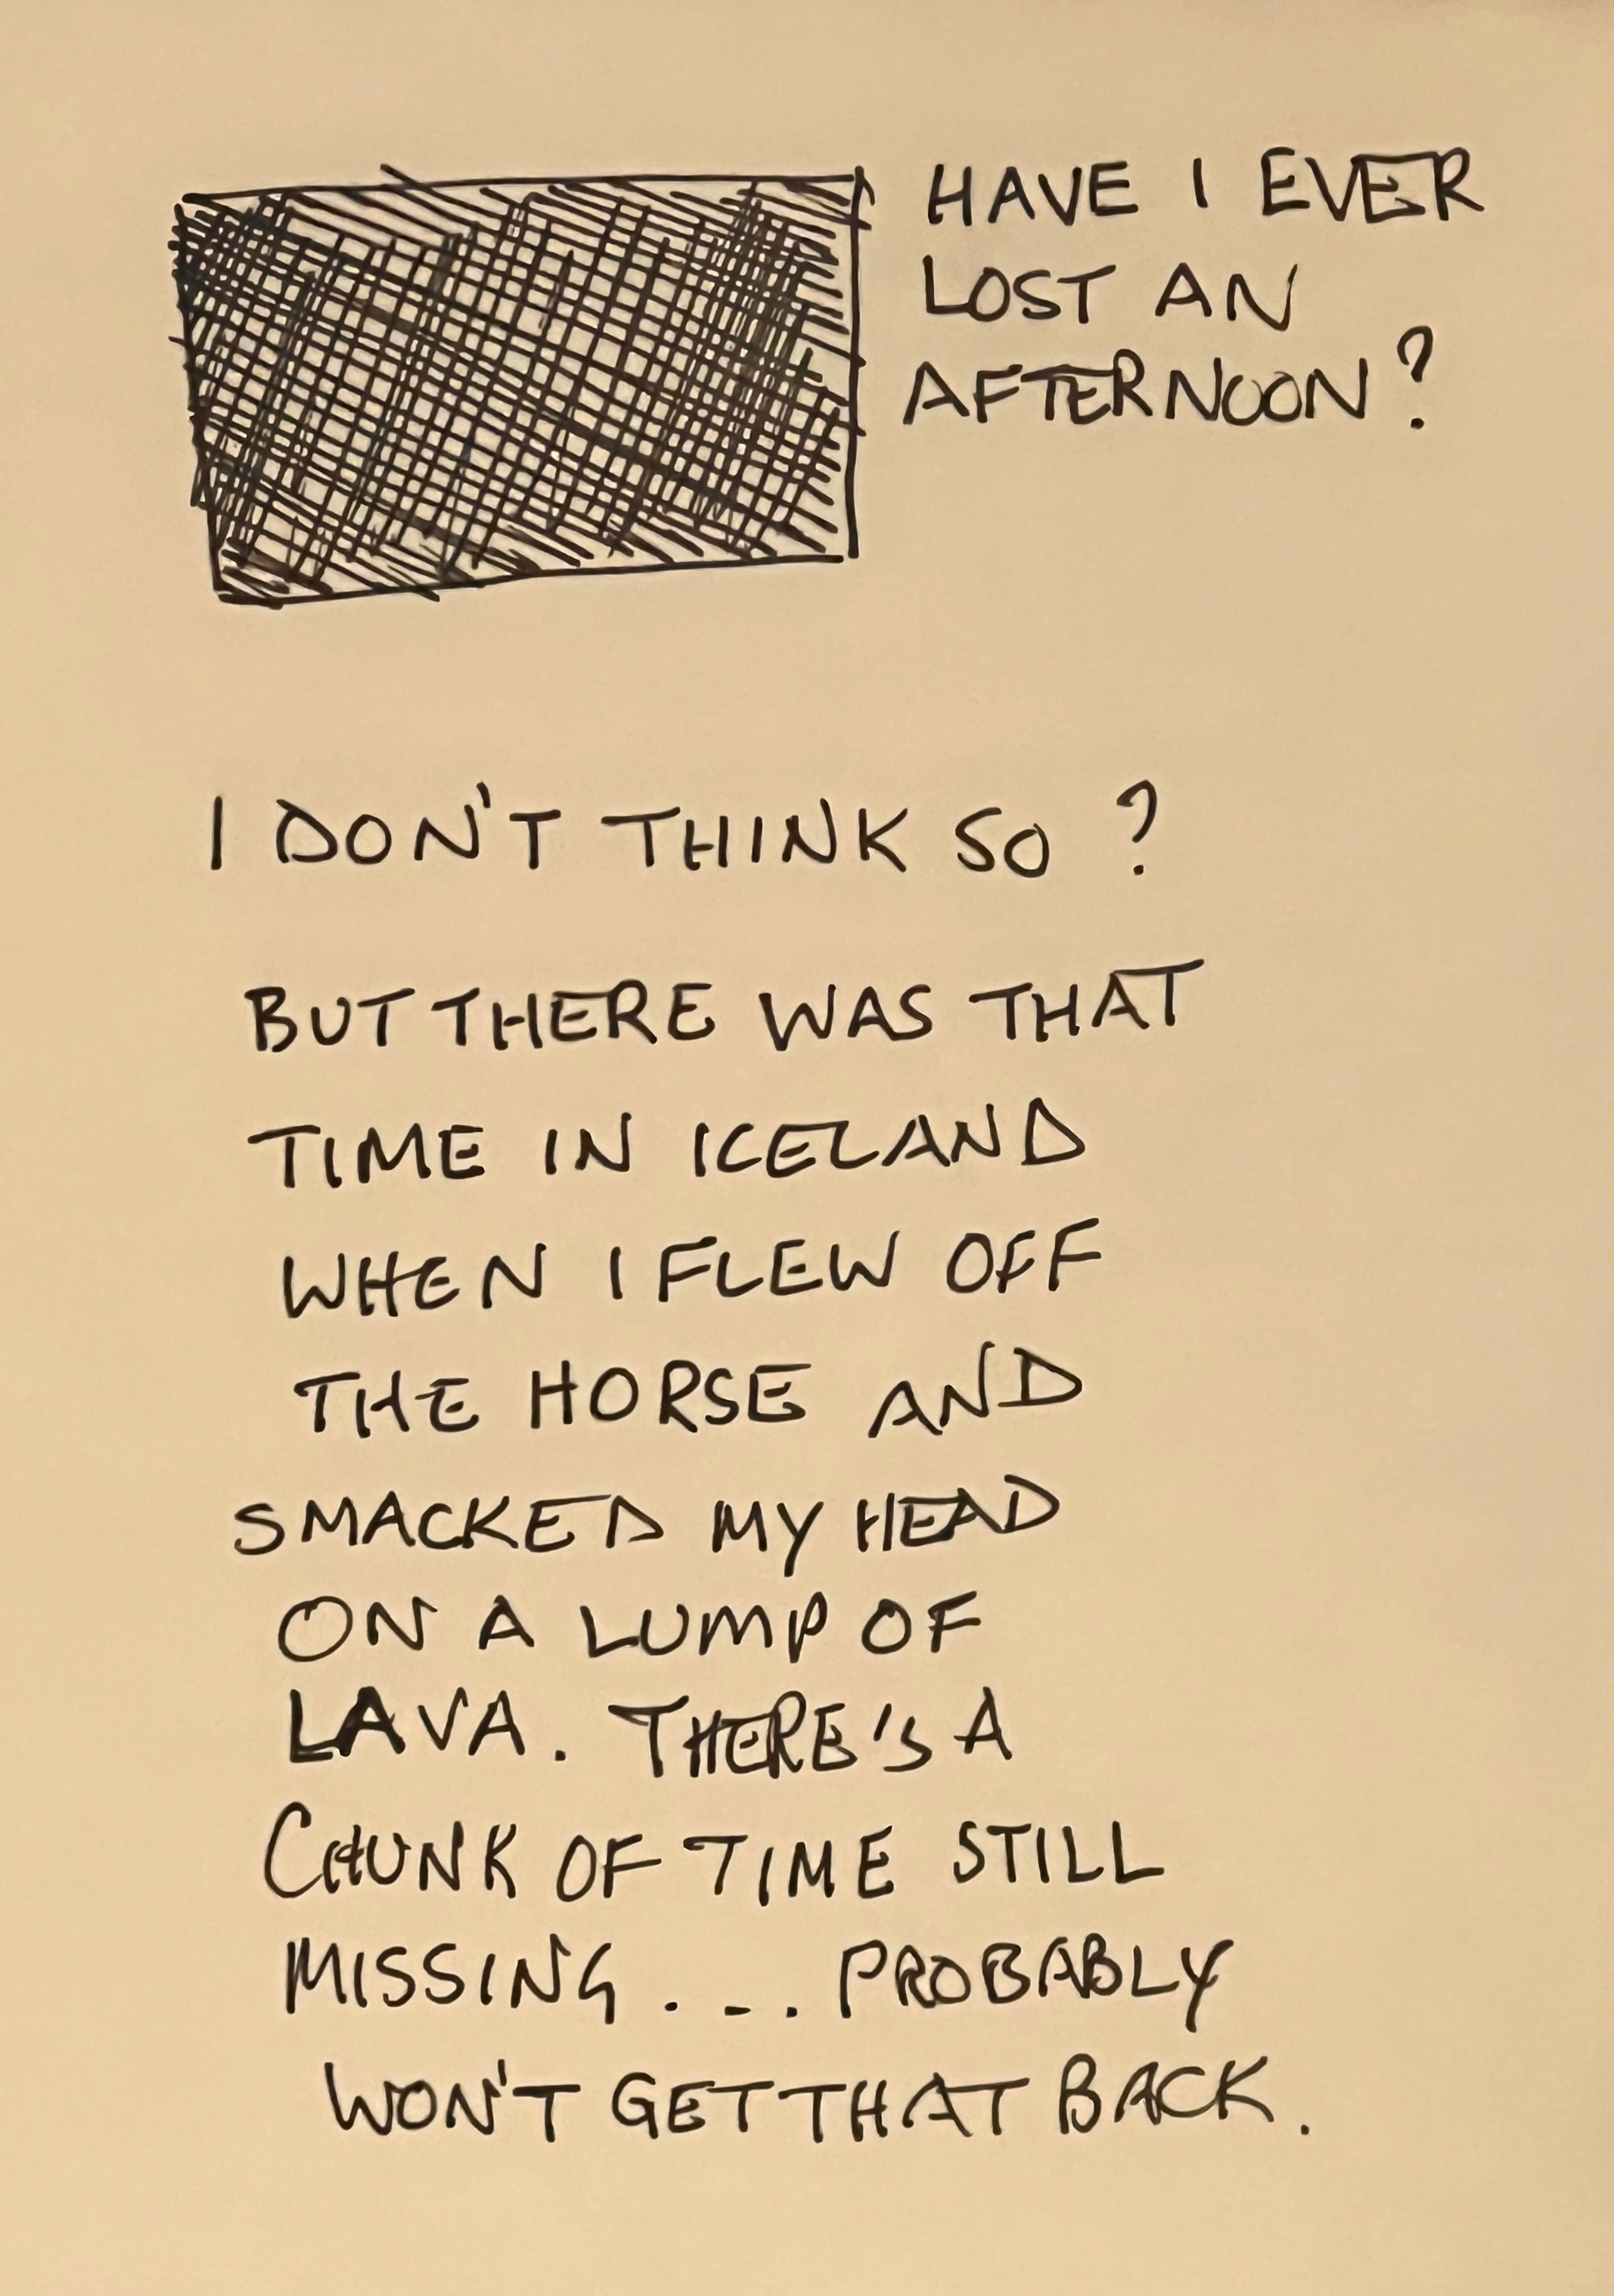 HAVE I EVER
LOST AN
AFTERNOON?
I DON'T THINK SO?
BUT THERE WAS THAT
TIME IN ICELAND
WHEN I FLEW OFF
THE HORSE AND
SMACKED MY HEAD
ON A LUMP OF
LAVA. THERE'S A
CHUNK OF TIME STILL
MISSING... PROBABLY
WON'T GET THAT BACK.